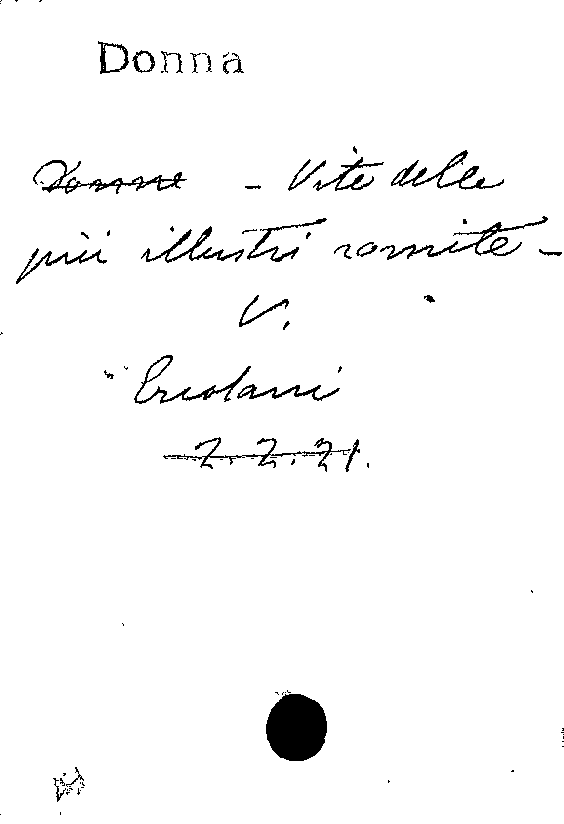 Donna
Donne - Vite delle
più illustri romite -
V.
Ercolani
2. 2. 21.